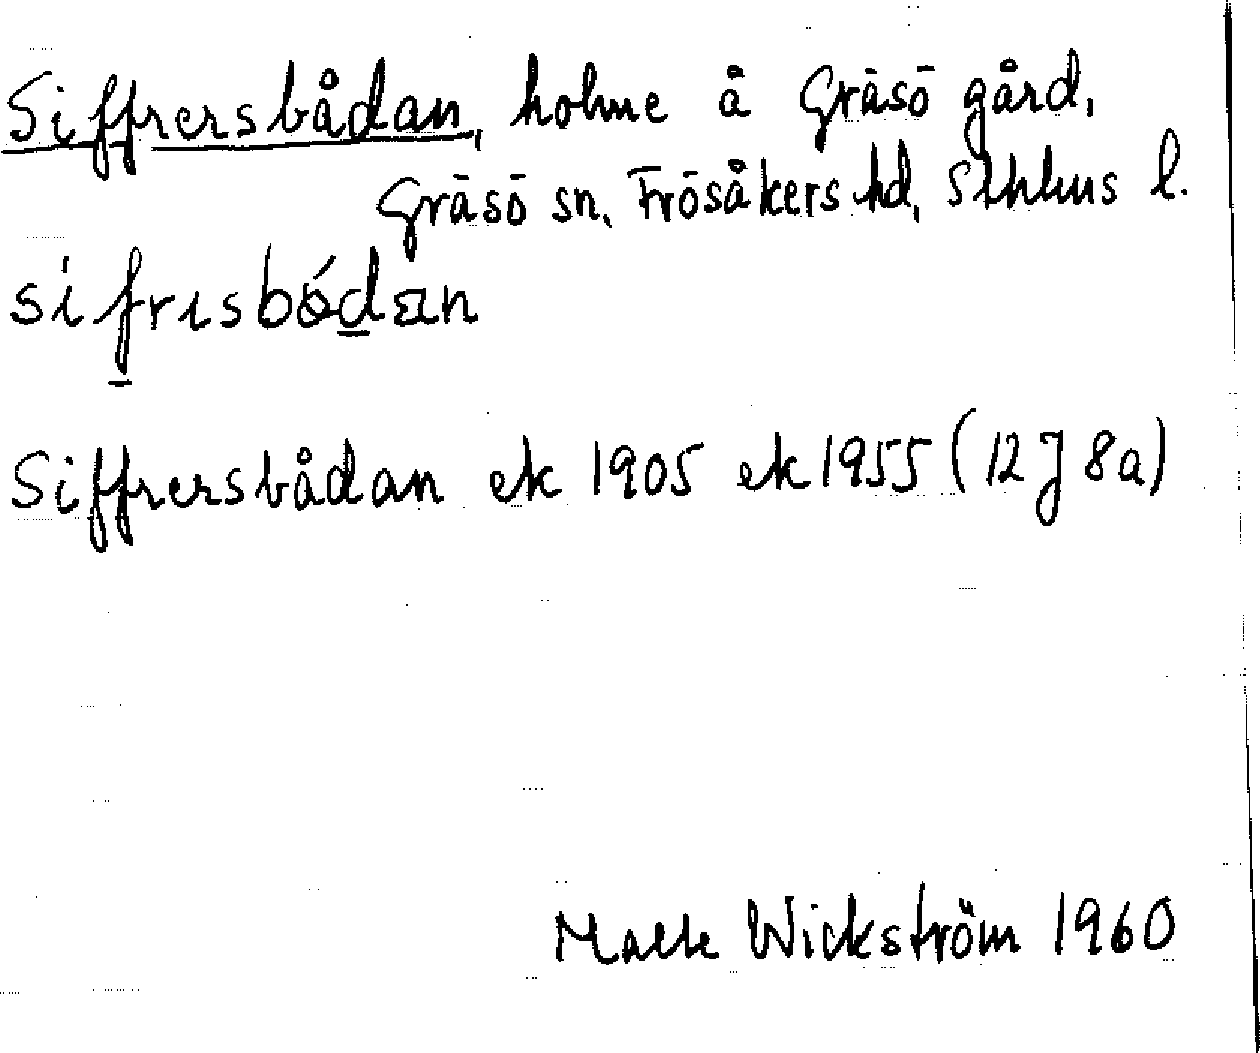 Siffrersbådan, holme å Gräsö gård,
Gräsö sn, Frösåkers hd, Sthlms l.
sifrɪsbódan
Siffrersbådan ek 1905 ek 1955 (12J 8a)
Malte Wickström 1960